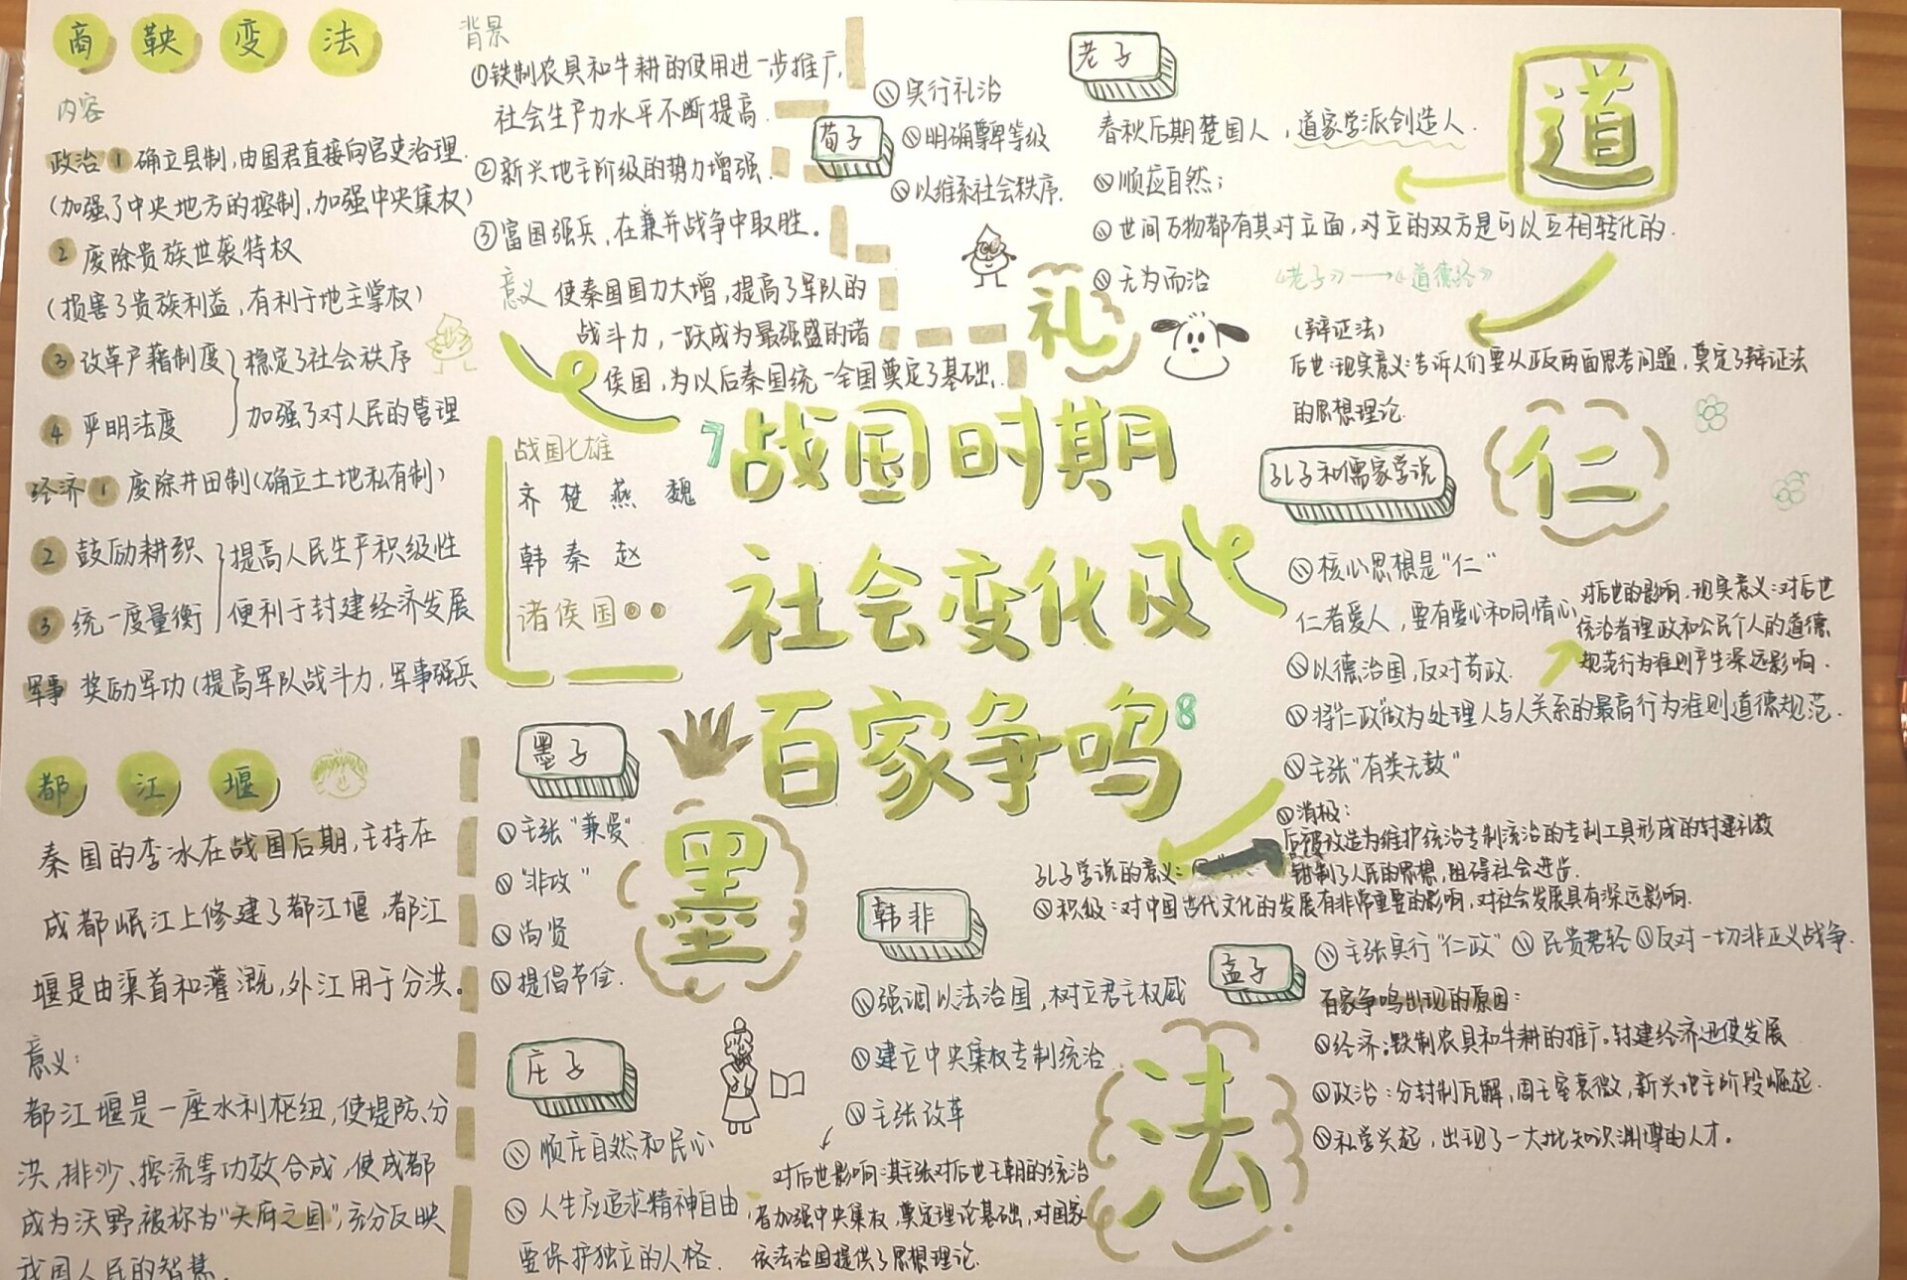 商鞅变法
内容
政治 1 确立县制,由国君直接向官吏治理.
(加强了中央地方的控制,加强中央集权)
2 废除贵族世袭特权
(损害了贵族利益,有利于地主掌权)
3 改革户籍制度
4 严明法度
稳定了社会秩序
加强了对人民的管理
经济 1 废除井田制(确立土地私有制)
2 鼓励耕织
3 统一度量衡
提高人民生产积极性
便利于封建经济发展
军事 奖励军功(提高军队战斗力,军事强兵
都江堰
秦国的李冰在战国后期,主持在
成都岷江上修建了都江堰,都江
堰是由渠首和灌溉,外江用于分洪。
意义:
都江堰是一座水利枢纽,使堤防、分
洪、排沙、控流等功效合成,使成都
成为沃野被称为“天府之国”,充分反映
我国人民的智慧.
背景
①铁制农具和牛耕的使用进一步推广,
社会生产力水平不断提高.
②新兴地主阶级的势力增强.
③富国强兵、在兼并战争中取胜。
意义 使秦国国力大增,提高了军队的
战斗力,一跃成为最强盛的诸
侯国,为以后秦国统一全国奠定了基础.
战国七雄
齐 楚 燕 魏
韩 秦 赵
诸侯国
7 战国时期
社会变化及
百家争鸣 8
荀子
实行礼治
明确尊卑等级
以维系社会秩序.
礼
老子
春秋后期楚国人,道家学派创造人.
顺应自然;
世间万物都有其对立面,对立的双方是可以互相转化的.
无为而治
《老子》→《道德经》
道
(辩证法)
后世:现实意义:告诉人们要从正反两面思考问题,奠定了辩证法
的思想理论.
孔子和儒家学说
仁
核心思想是“仁“
仁者爱人,要有爱心和同情心
以德治国,反对苛政.
将“仁政”做为处理人与人关系的最高行为准则道德规范.
主张“有类无教”
对后世的影响.现实意义:对后世
统治者理政和公民个人的道德
规范行为准则产生深远影响.
孔子学说的意义:
消极:
后被改造为维护统治专制统治的专制工具形成的封建礼教
钳制了人民的思想,阻碍社会进步.
积极:对中国古代文化的发展有非常重要的影响,对社会发展具有深远影响.
孟子
主张实行“仁政” 民贵君轻 反对一切非正义战争.
百家争鸣出现的原因:
经济:铁制农具和牛耕的推广。封建经济迅速发展
政治:分封制瓦解,周王室衰微,新兴地主阶段崛起.
私学兴起,出现了一大批知识渊博的人才。
墨子
主张“兼爱”
“非攻”
尚贤
提倡节俭.
墨
庄子
顺应自然和民心
人生应追求精神自由,
要保护独立的人格.
韩非
强调以法治国,树立君主权威
建立中央集权专制统治
主张改革
对后世影响:其主张对后世王朝的统治
者加强中央集权,奠定理论基础,对国家
依法治国提供了思想理论.
法